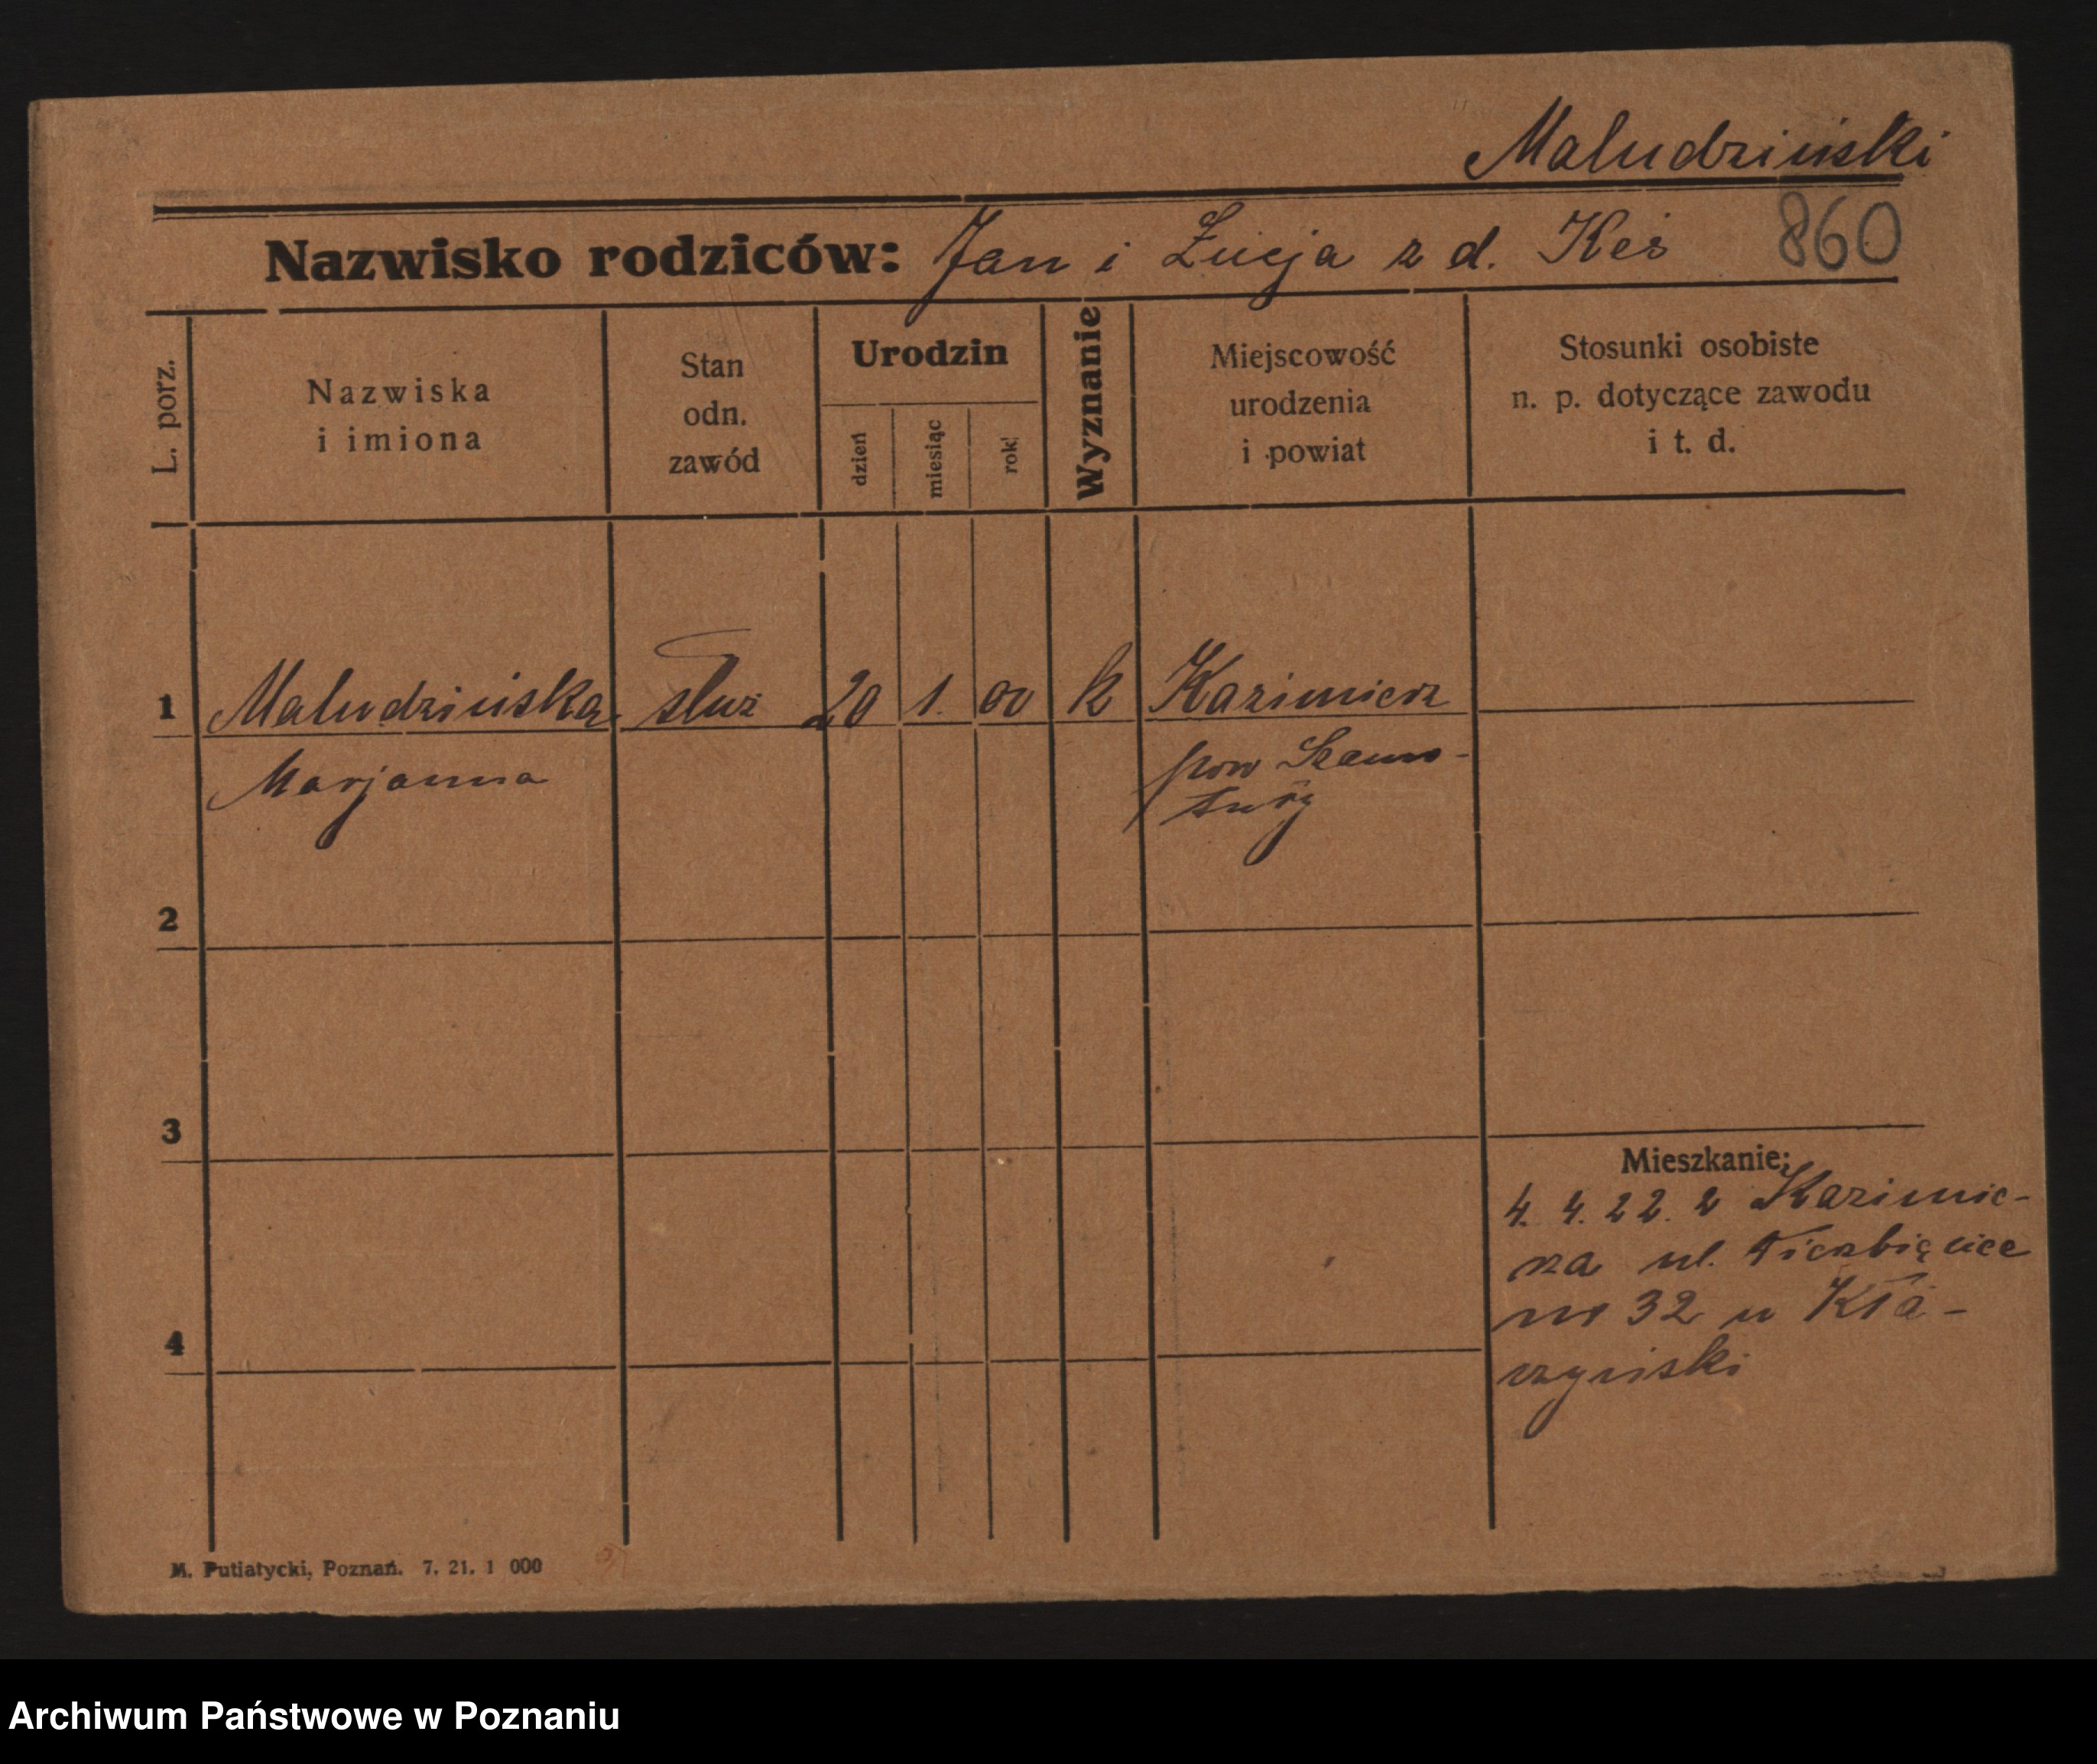 Maludziński
Nazwisko rodziców: Jan i Łucja z d. Keś 860
L. porz.
Nazwiska
i imiona
Stan
odn.
zawód
Urodzin
dzień
miesiąc
rok
Wyznanie
Miejscowość
urodzenia
i powiat
Stosunki osobiste
n. p. dotyczące zawodu
i t. d.
1 Maludzińska służ 20 1. 00 k Kazimierz
Marjanna pow Szamo-
tuły
2
3
Mieszkanie:
4. 4. 22. z Kazimie-
rza ul. Wierzbięcice
nr 32 u
4
M. Putiatycki, Poznań. 7. 21. 1 000
Archiwum Państwowe w Poznaniu